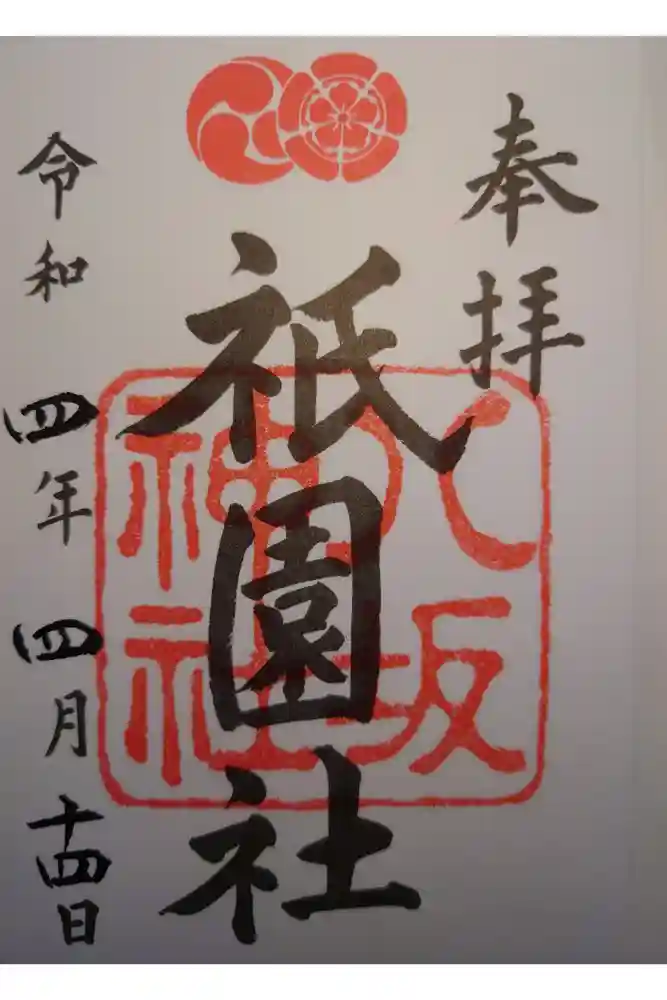 奉拝
祇園社
八坂神社
令和四年四月十四日